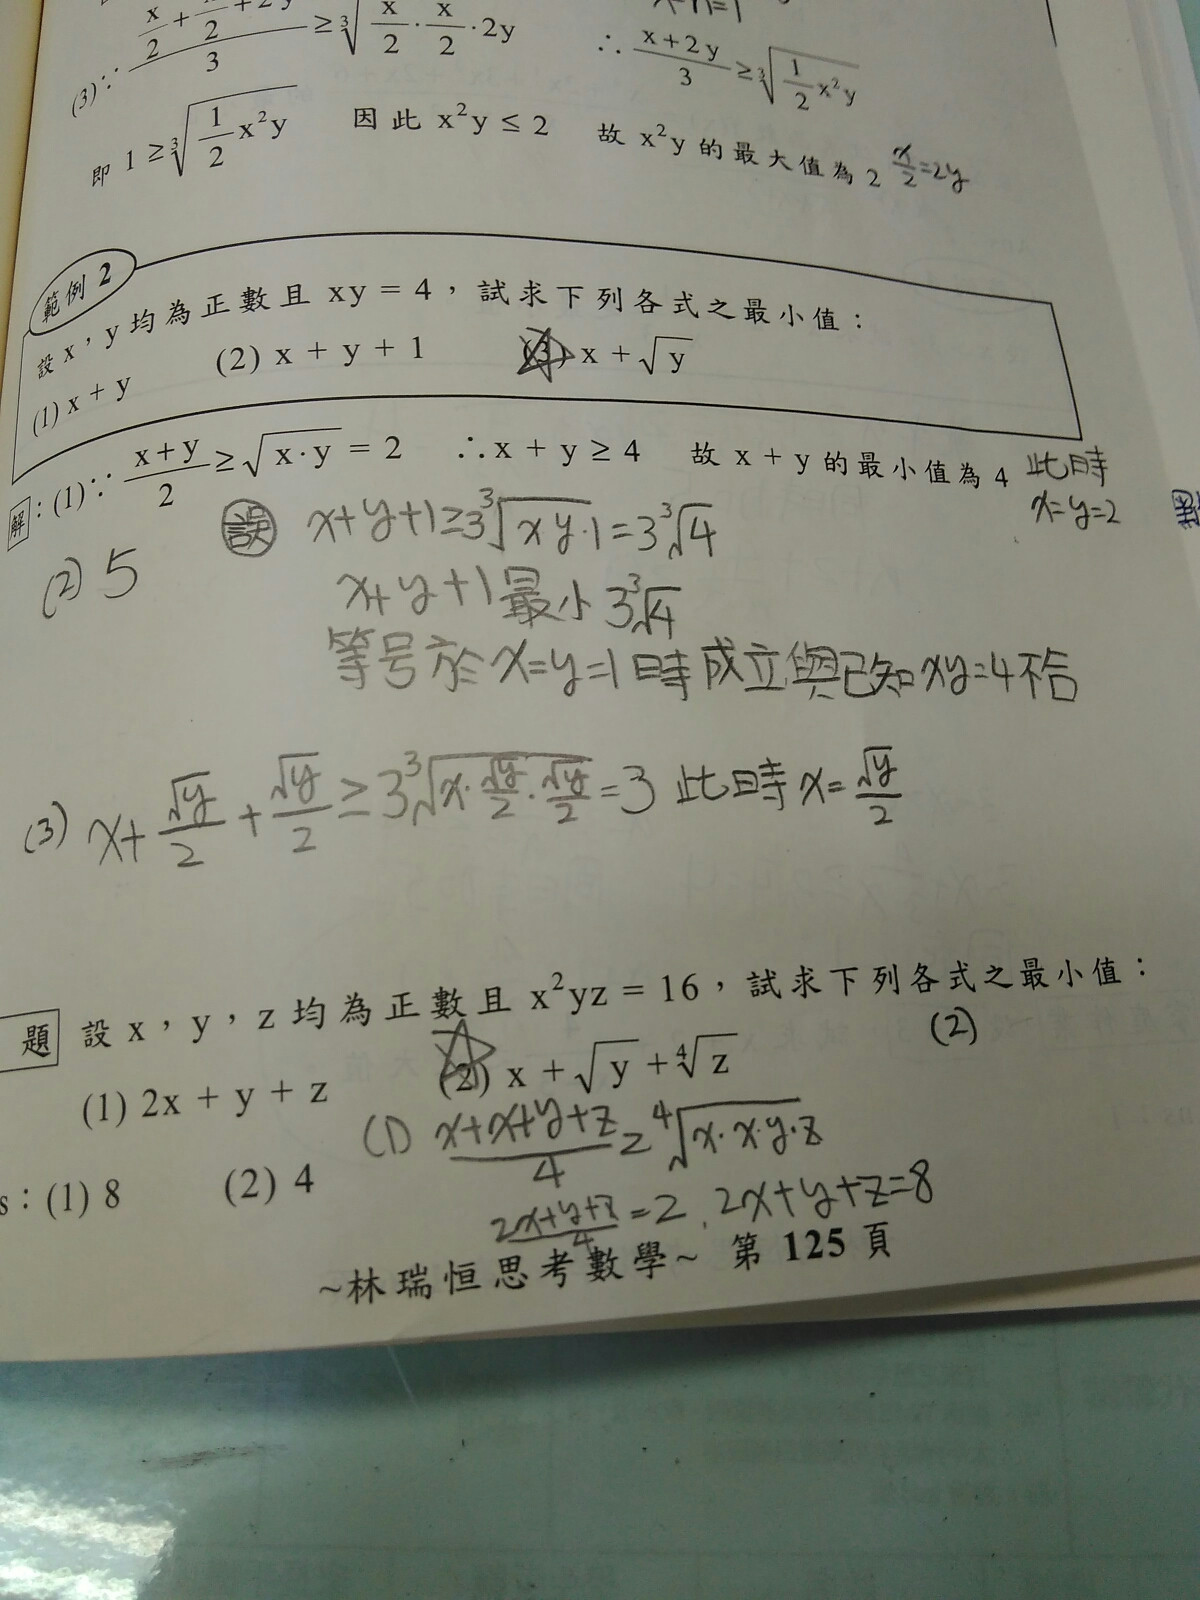 (3)∵ (x/2 + x/2 + 2y)/3 ≥ ∛(x/2 · x/2 · 2y)　∴ (x+2y)/3 ≥ ∛(1/2 x²y)
即 1 ≥ ∛(1/2 x²y)　因此 x²y ≤ 2　故 x²y 的最大值為 2　x/2=2y
範例 2
設 x，y 均為正數且 xy = 4，試求下列各式之最小值：
(1) x + y　(2) x + y + 1　(3) x + √y
解：(1)∵ (x+y)/2 ≥ √(x·y) = 2　∴ x + y ≥ 4　故 x + y 的最小值為 4　此時
x=y=2
(2) 5　誤　x+y+1≥3∛(xy·1)=3∛4
x+y+1最小3∛4
等号於x=y=1時成立與已知xy=4不合
(3) x+√y/2+√y/2≥3∛(x·√y/2·√y/2)=3 此時x=√y/2
題　設 x，y，z 均為正數且 x²yz = 16，試求下列各式之最小值：
(2)
(1) 2x + y + z　(2) x + √y + ⁴√z
(1) (x+x+y+z)/4 ≥ ⁴√(x·x·y·z)
s：(1) 8　(2) 4
(2x+y+z)/4=2, 2x+y+z=8
~林瑞恒思考數學~ 第 125 頁